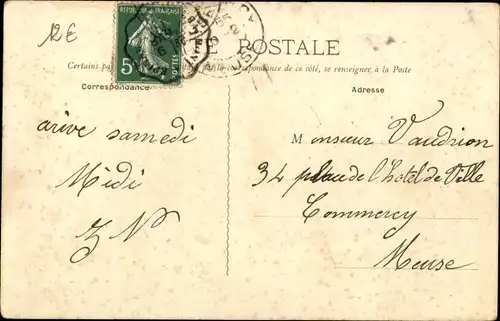 12€
RÉPUBLIQUE FRANÇAISE
5c
POSTES
E POSTALE
Certains pa la correspondance de ce côté, se renseigner à la Poste
Correspondance
Adresse
arive samedi
Midi
Monsieur Vaudrion
34 place de l'hotel de Ville
Commercy
Meuse